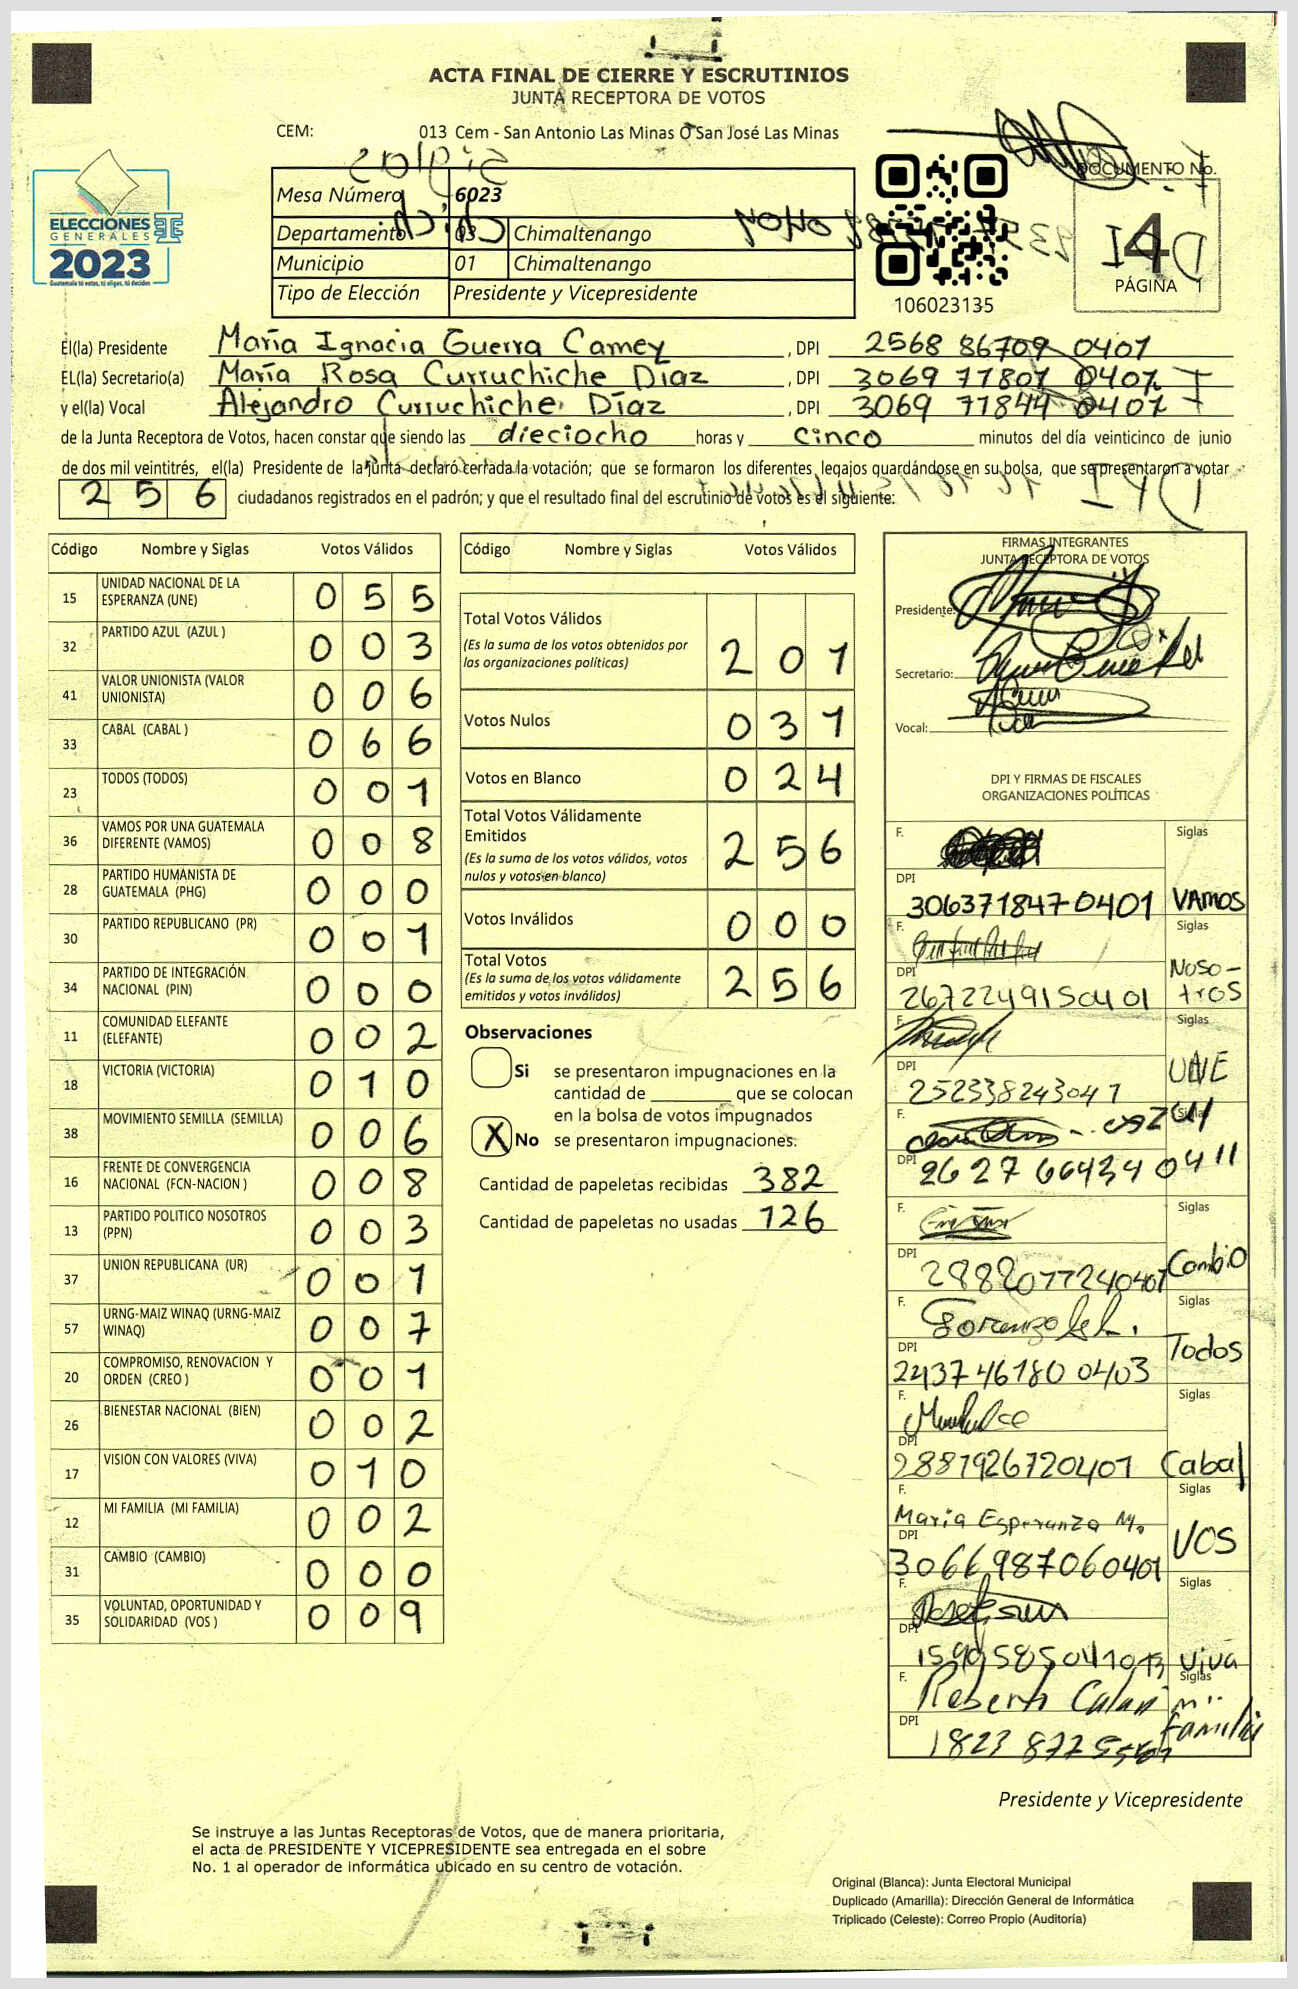 ACTA FINAL DE CIERRE Y ESCRUTINIOS
JUNTA RECEPTORA DE VOTOS
CEM: 013 Cem - San Antonio Las Minas O San José Las Minas
ELECCIONES
GENERALES
2023
Guatemala tú votas, tú eliges, tú decides
Mesa Número 6023
Departamento 03 Chimaltenango
Municipio 01 Chimaltenango
Tipo de Elección Presidente y Vicepresidente
106023135
DOCUMENTO No.
4
PÁGINA 1
El(la) Presidente María Ignacia Guerra Camey , DPI 2568 86709 0401
EL(la) Secretario(a) María Rosa Curruchiche Díaz , DPI 3069 77807 0407
y el(la) Vocal Alejandro Curruchiche Díaz , DPI 3069 77844 0407
de la Junta Receptora de Votos, hacen constar que siendo las dieciocho horas y cinco minutos del día veinticinco de junio
de dos mil veintitrés, el(la) Presidente de la junta declaró cerrada la votación; que se formaron los diferentes legajos guardándose en su bolsa, que se presentaron a votar
256 ciudadanos registrados en el padrón; y que el resultado final del escrutinio de votos es el siguiente:
Código Nombre y Siglas Votos Válidos
15 UNIDAD NACIONAL DE LA ESPERANZA (UNE) 0 5 5
32 PARTIDO AZUL (AZUL ) 0 0 3
41 VALOR UNIONISTA (VALOR UNIONISTA) 0 0 6
33 CABAL (CABAL ) 0 6 6
23 TODOS (TODOS) 0 0 1
36 VAMOS POR UNA GUATEMALA DIFERENTE (VAMOS) 0 0 8
28 PARTIDO HUMANISTA DE GUATEMALA (PHG) 0 0 0
30 PARTIDO REPUBLICANO (PR) 0 0 1
34 PARTIDO DE INTEGRACIÓN NACIONAL (PIN) 0 0 0
11 COMUNIDAD ELEFANTE (ELEFANTE) 0 0 2
18 VICTORIA (VICTORIA) 0 1 0
38 MOVIMIENTO SEMILLA (SEMILLA) 0 0 6
16 FRENTE DE CONVERGENCIA NACIONAL (FCN-NACION ) 0 0 8
13 PARTIDO POLITICO NOSOTROS (PPN) 0 0 3
37 UNION REPUBLICANA (UR) 0 0 1
57 URNG-MAIZ WINAQ (URNG-MAIZ WINAQ) 0 0 7
20 COMPROMISO, RENOVACION Y ORDEN (CREO ) 0 0 1
26 BIENESTAR NACIONAL (BIEN) 0 0 2
17 VISION CON VALORES (VIVA) 0 1 0
12 MI FAMILIA (MI FAMILIA) 0 0 2
31 CAMBIO (CAMBIO) 0 0 0
35 VOLUNTAD, OPORTUNIDAD Y SOLIDARIDAD (VOS ) 0 0 9
Código Nombre y Siglas Votos Válidos
Total Votos Válidos
(Es la suma de los votos obtenidos por las organizaciones políticas) 2 0 1
Votos Nulos 0 3 1
Votos en Blanco 0 2 4
Total Votos Válidamente Emitidos
(Es la suma de los votos válidos, votos nulos y votos en blanco) 2 5 6
Votos Inválidos 0 0 0
Total Votos
(Es la suma de los votos válidamente emitidos y votos inválidos) 2 5 6
Observaciones
Si se presentaron impugnaciones en la
cantidad de ________ que se colocan
en la bolsa de votos impugnados
X No se presentaron impugnaciones.
Cantidad de papeletas recibidas 382
Cantidad de papeletas no usadas 126
FIRMAS INTEGRANTES
JUNTA RECEPTORA DE VOTOS
Presidente:
Secretario:
Vocal:
DPI Y FIRMAS DE FISCALES
ORGANIZACIONES POLÍTICAS
F. Siglas
DPI 3063718470401 VAMOS
F. Siglas
DPI 2672249150401 Noso-
tros
F. Siglas
DPI 252338243041 UNE
F. Siglas
DPI 2627 66434 0411
F. Siglas
DPI 2882077240407 Cambio
F. Siglas
DPI 2437 46180 0403 Todos
F. Siglas
DPI 2881926720401 Cabal
F. Maria Esperanza M. Siglas
DPI 3066987060401 VOS
F. Siglas
DPI Viva
F. Roberto Siglas
DPI 1823 mi
familia
Presidente y Vicepresidente
Se instruye a las Juntas Receptoras de Votos, que de manera prioritaria,
el acta de PRESIDENTE Y VICEPRESIDENTE sea entregada en el sobre
No. 1 al operador de informática ubicado en su centro de votación.
Original (Blanca): Junta Electoral Municipal
Duplicado (Amarilla): Dirección General de Informática
Triplicado (Celeste): Correo Propio (Auditoría)